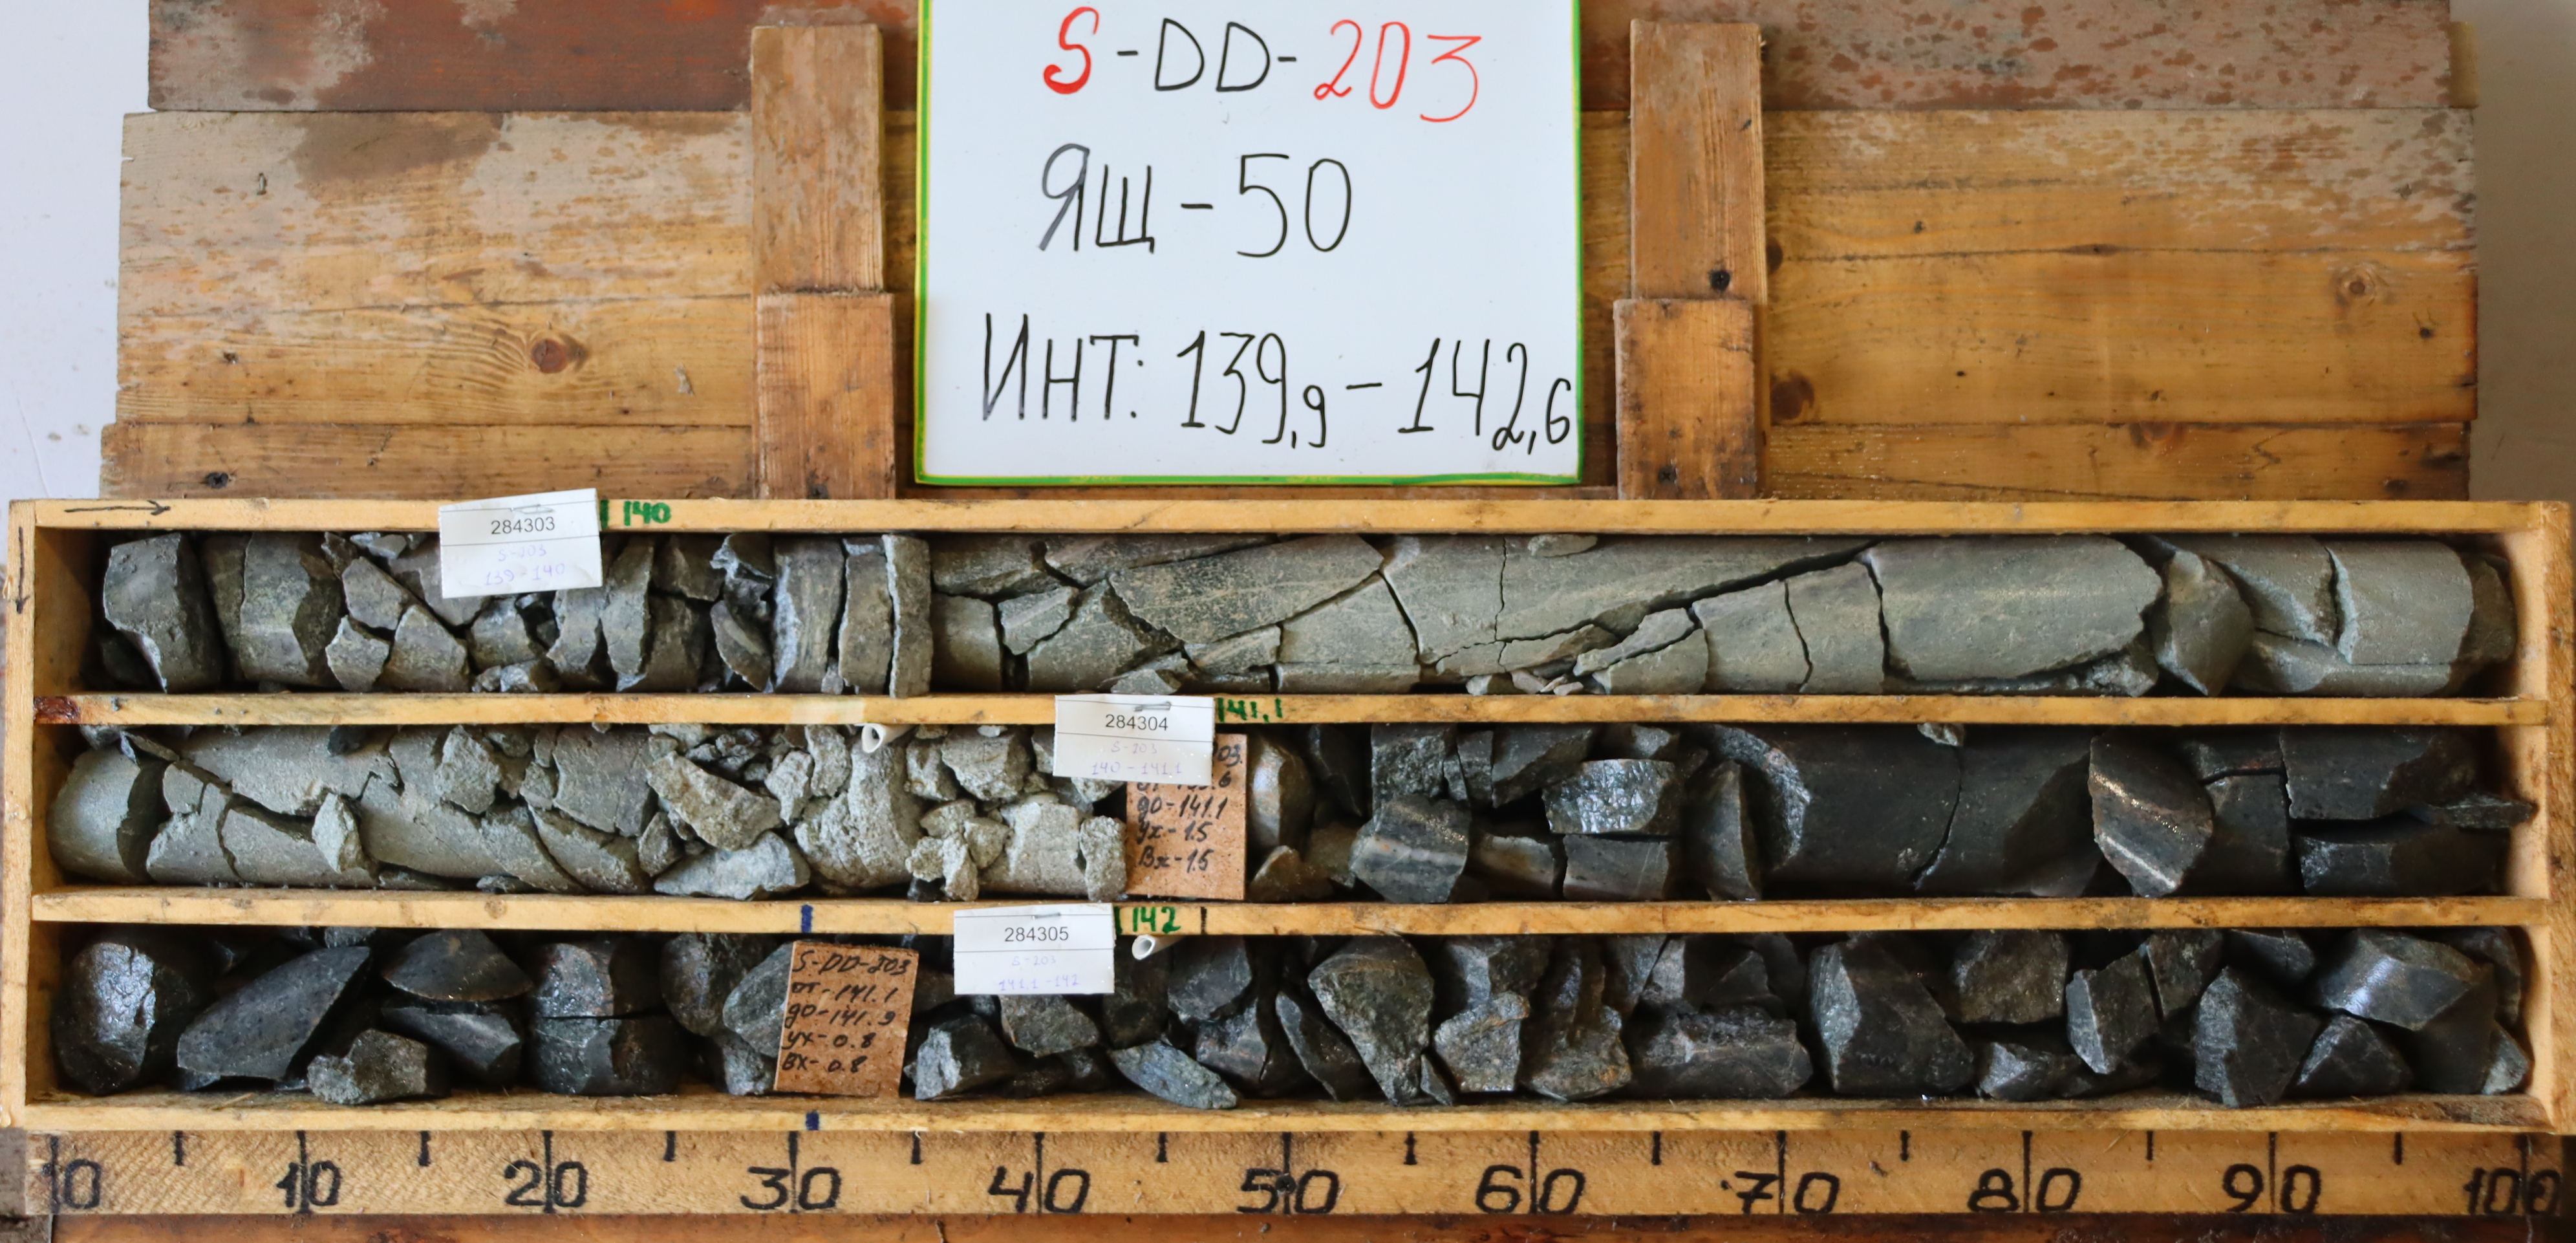 S-DD-203
ЯЩ-50
ИНТ: 139,9-142,6
284303
S-203
139-140
140
284304
S-203
140-141.1
141.1
03.
до-141.1
ух-1.5
Вх-1.5
284305
S-203
141.1-142
142
S-DD-203
от-141.1
до-141.9
ух-0.8
Вх-0.8
0 10 20 30 40 50 60 70 80 90 100